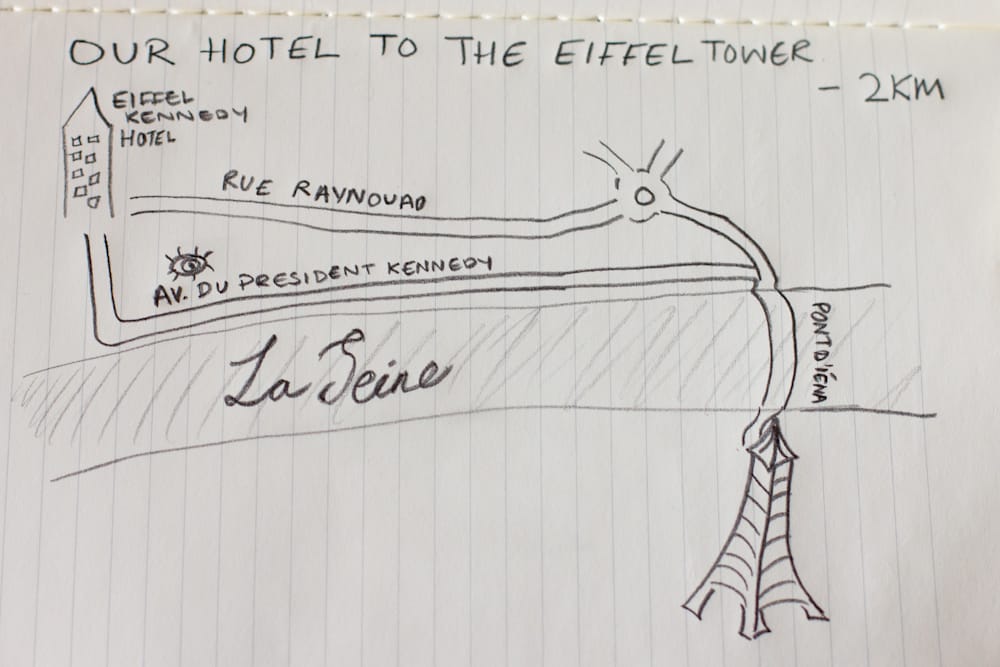 OUR HOTEL TO THE EIFFEL TOWER
- 2KM
EIFFEL
KENNEDY
HOTEL
RUE RAYNOUAD
AV. DU PRESIDENT KENNEDY
La Seine
PONT D'IÉNA